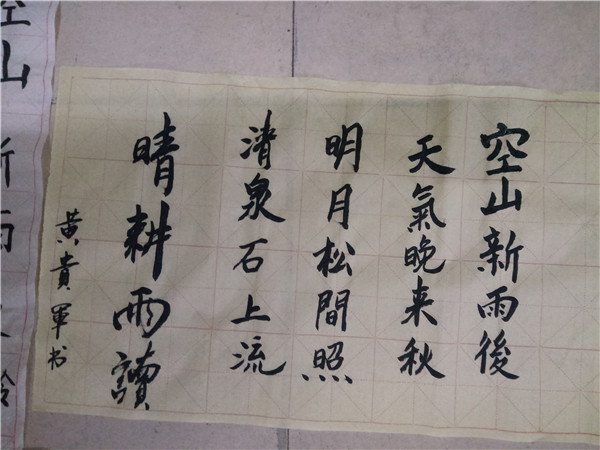 空山新雨後
天氣晚来秋
明月松間照
清泉石上流
晴耕雨讀
黄貴軍书
空山新雨